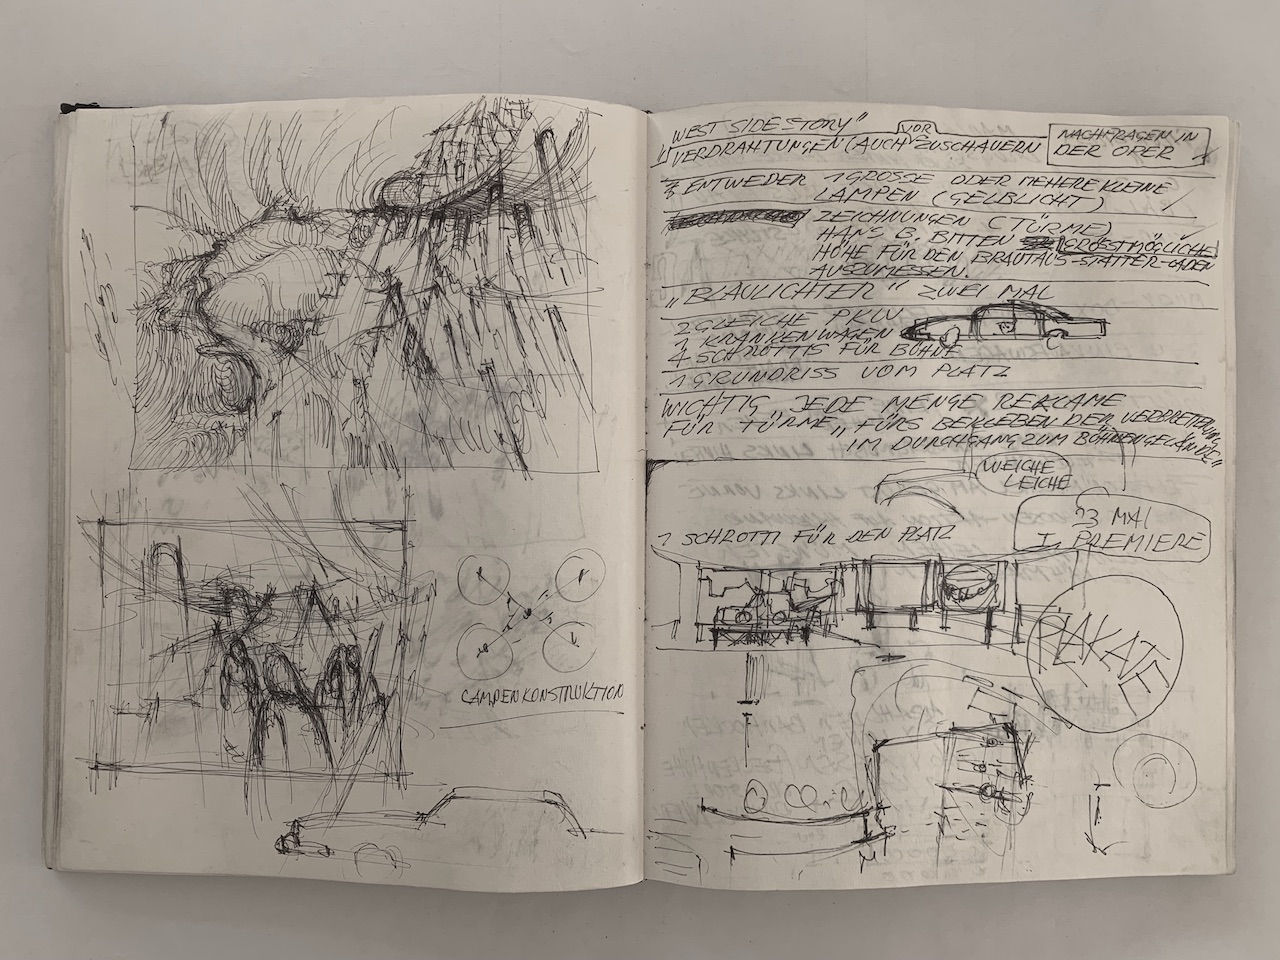 LAMPENKONSTRUKTION
"WEST SIDE STORY"
VERDRAHTUNGEN (AUCH VOR ZUSCHAUERN
NACHFRAGEN IN
DER OPER
ENTWEDER 1 GROSSE ODER MEHERE KLEINE
LAMPEN (GELBLICHT)
ZEICHNUNGEN (TÜRME)
HANS B. BITTEN GRÖSTMÖGLICHE
HÖHE FÜR DEN BRAUTAUS-STATTER-LADEN
AUSZUMESSEN.
„BLAULICHTER" ZWEI MAL
2 GLEICHE PKW
1 KRANKENWAGEN
4 SCHROTTIS FÜR BÜHNE
1 GRUNDRISS VOM PLATZ
WICHTIG JEDE MENGE REKLAME
FÜR TÜRME „FÜRS BEKLEBEN DER
IM DURCHGANG ZUM BÜHNENGELÄNDE"
WEICHE
LEICHE
23 MAL
I. PREMIERE
1 SCHROTTI FÜR DEN PLATZ
PLAKATE